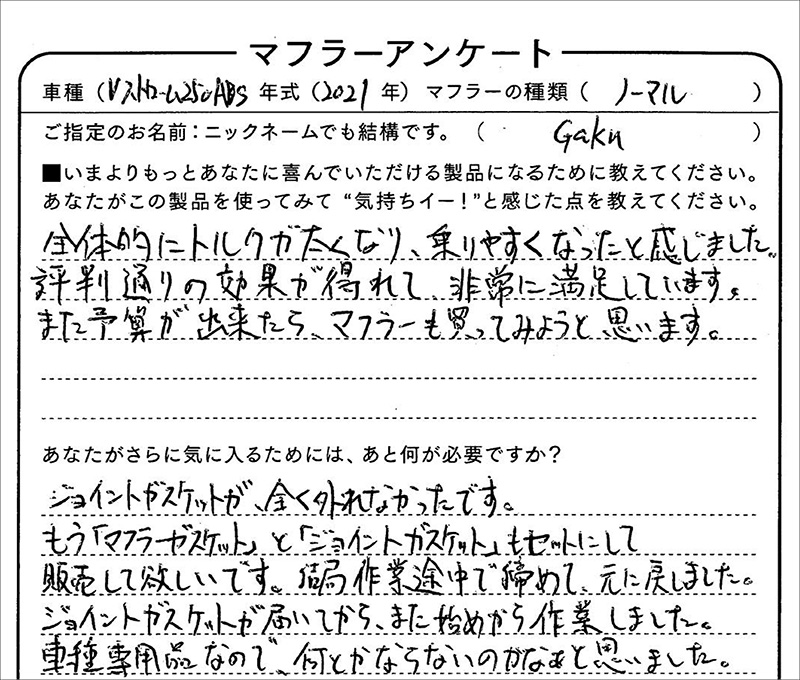 マフラーアンケート
車種（Vストローム250ABS 年式（2021 年）マフラーの種類（ ノーマル ）
ご指定のお名前：ニックネームでも結構です。（ Gaku ）
■いまよりもっとあなたに喜んでいただける製品になるために教えてください。
あなたがこの製品を使ってみて“気持ちイー！”と感じた点を教えてください。
全体的にトルクが太くなり、乗りやすくなったと感じました。
評判通りの効果が得れて、非常に満足しています。
また予算が出来たら、マフラーも買ってみようと思います。
あなたがさらに気に入るためには、あと何が必要ですか？
ジョイントガスケットが、全く外れなかったです。
もう「マフラーガスケット」と「ジョイントガスケット」もセットにして
販売して欲しいです。結局作業途中で締めて、元に戻しました。
ジョイントガスケットが届いてから、また始めから作業しました。
車種専用品なので、何とかならないのかなぁと思いました。